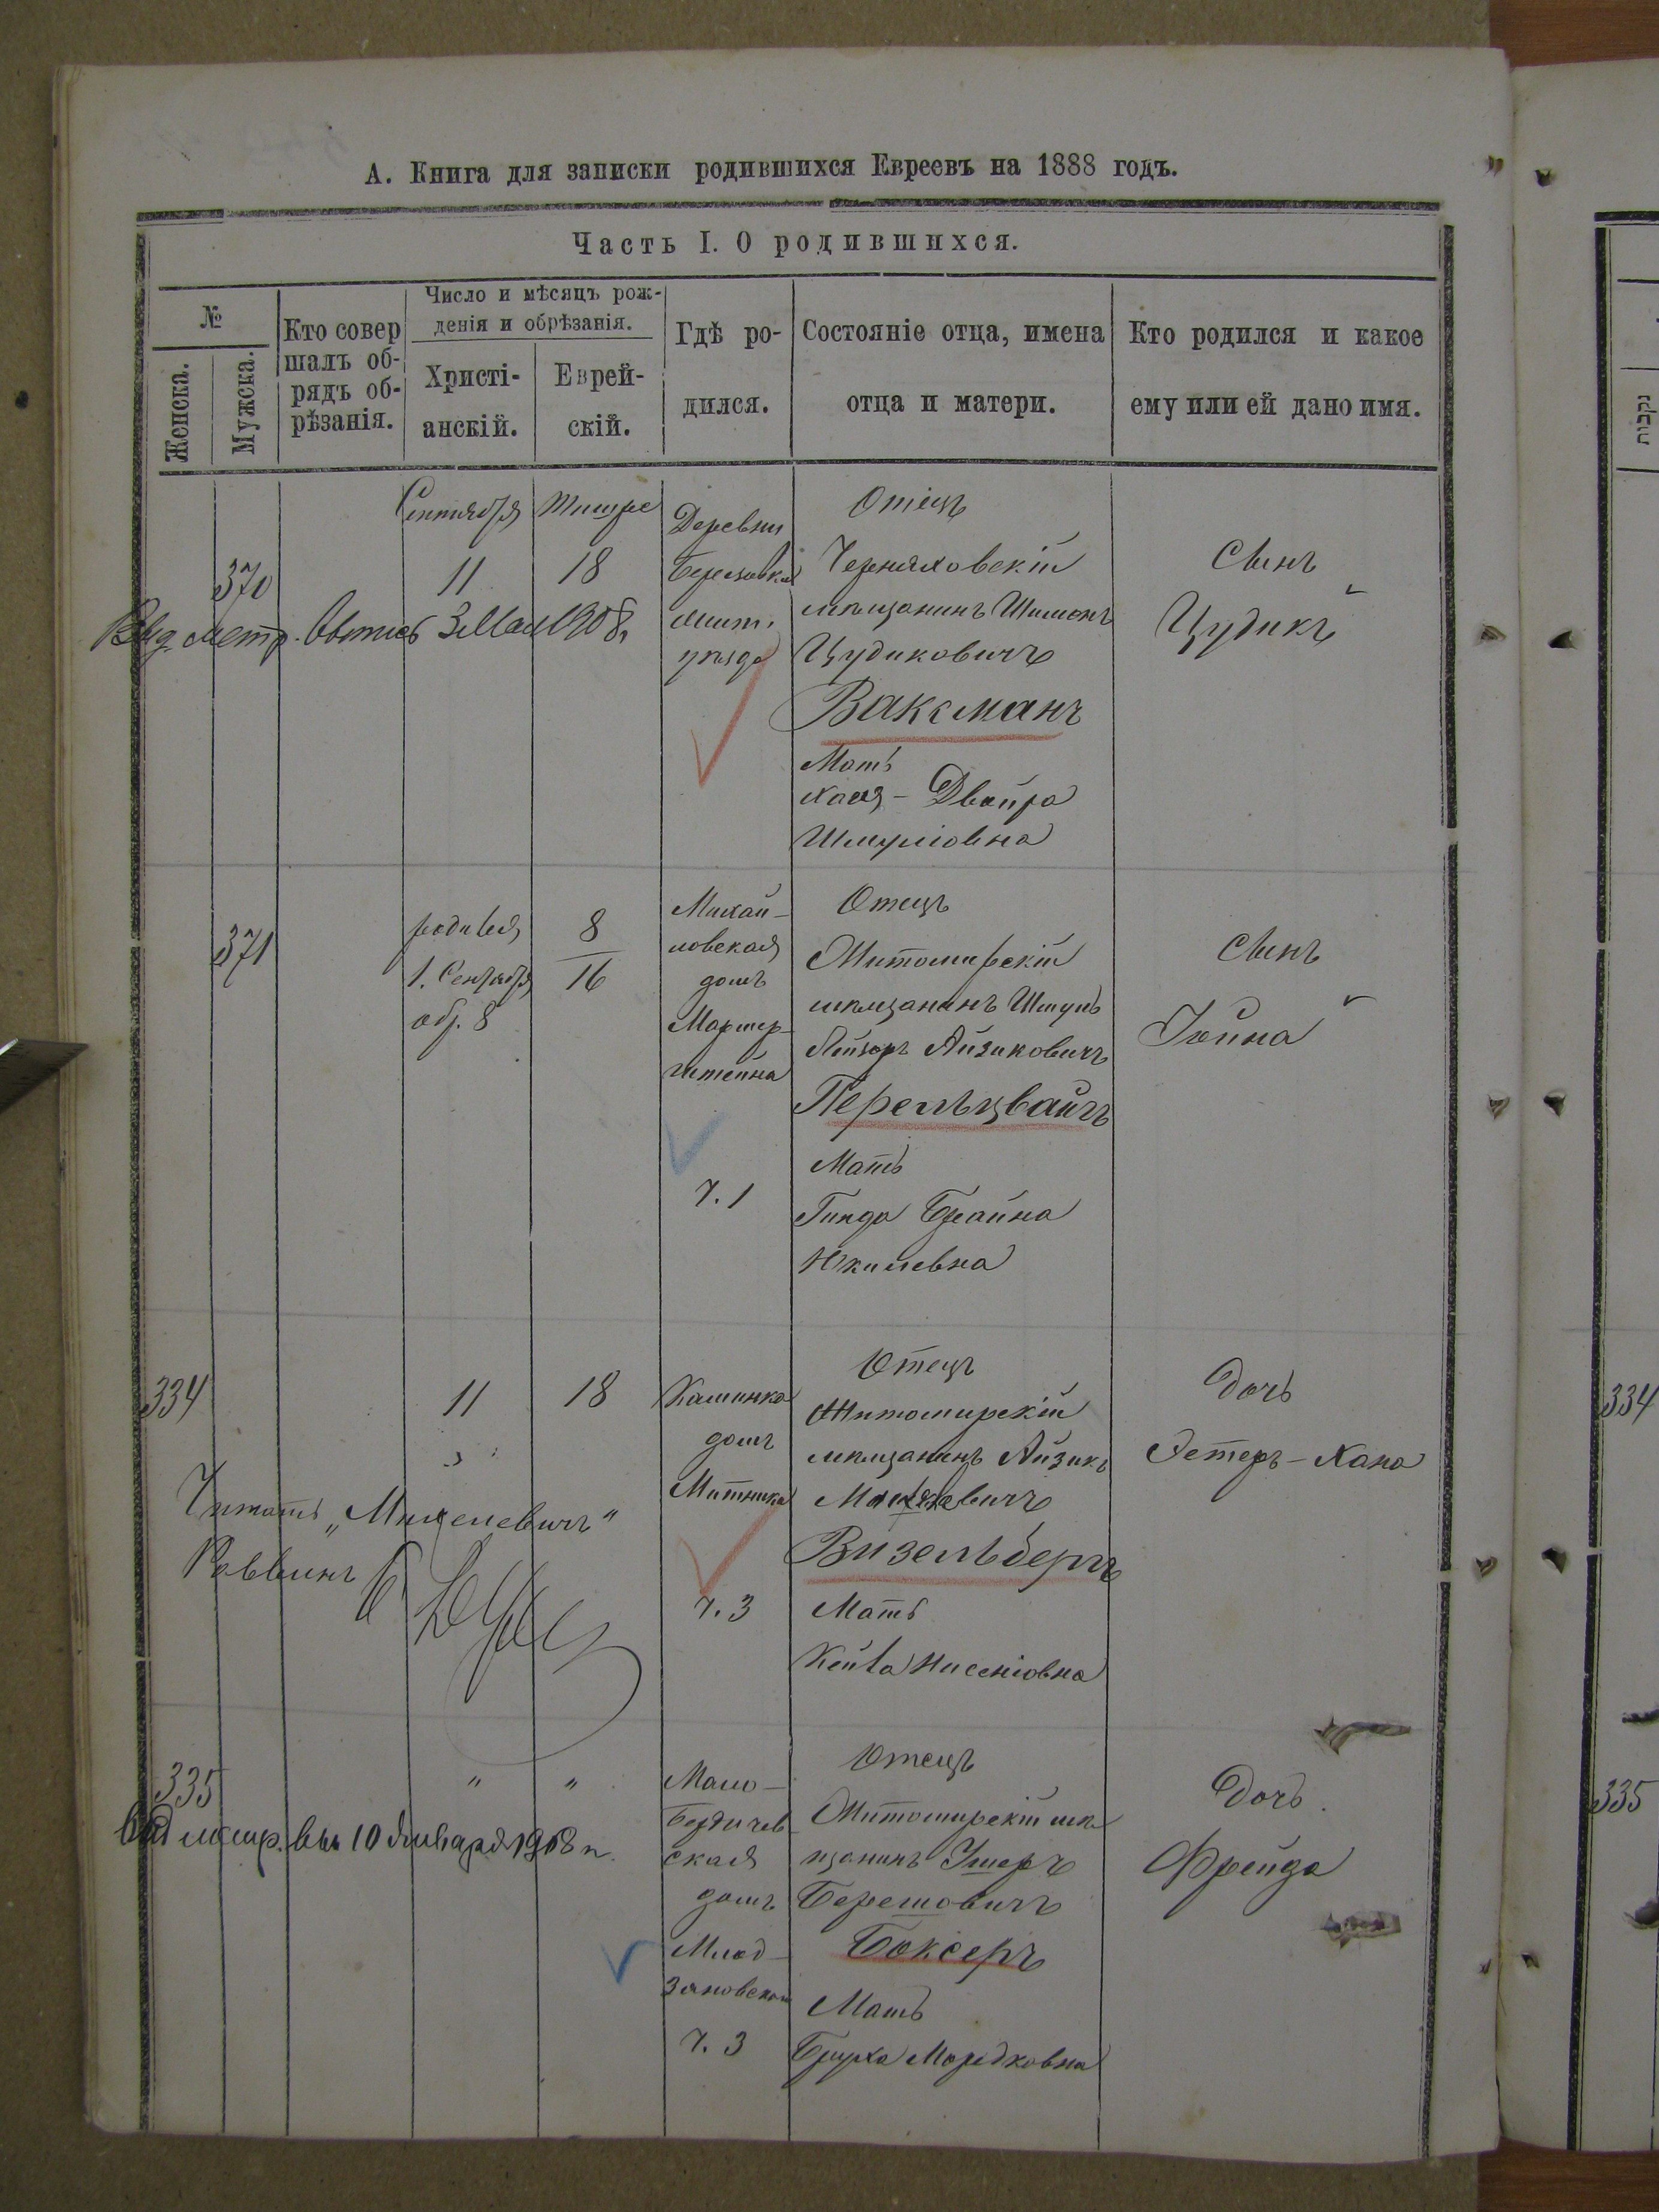 А. Книга для записки родившихся Евреевъ на 1888 годъ.
Часть I. О родившихся.
№
Женска.
Мужска.
Кто совер
шалъ об-
рядъ об-
рѣзанія.
Число и мѣсяцъ рож-
денія и обрѣзанія.
Христі-
анскій.
Еврей-
скій.
Гдѣ ро-
дился.
Состояніе отца, имена
отца и матери.
Кто родился и какое
ему или ей дано имя.
נקבות
370
Сентября
11
Тишре
18
Деревни
Березовка
Жит.
уѣзда
Отецъ
Черняховскій
мѣщанинъ Шимонъ
Цудиковичъ
Ваксманъ
Мать
Хася-Двойра
Шмулiовна
Сынъ
Цудикъ
Выд. метр. 3 Мая 1908 г.
371
родился
1. Сентября
обр. 8
8
16
Михай-
ловская
домъ
штейна
ч. 1
Отецъ
Житомирскій
мѣщанинъ Шмуль
Лейзоръ Айзиковичъ
Перельцвайгъ
Мать
Гинда Брайна
Ихилевна
Сынъ
Іойна
334
11
"
18
Каминка
домъ
Митника
ч. 3
Отецъ
Житомирскій
мѣщанинъ Айзикъ
Визельбергъ
Мать
Кейла Нисенiовна
Дочь
Эстеръ-Хана
Читать „Михелевичъ"
Раввинъ
335
"
"
Мало-
Бердичев
ская
домъ
Млод-
зяновскаго
ч. 3
Отецъ
Житомирскій мѣ
щанинъ Ушеръ
Беретовичъ
Боксеръ
Мать
Бруха Мордковна
Дочь
Фрейда
Выд метр. вып 10 Января 1908 г.
334
335